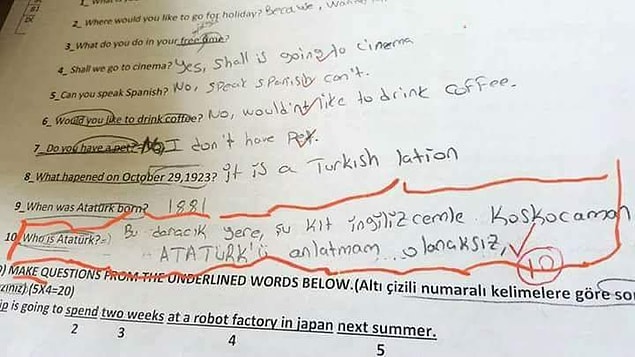 2_ Where would you like to go for holiday? Because,
3_ What do you do in your free time?
4_ Shall we go to cinema? Yes, shall is going to cinema
5_ Can you speak Spanish? No, speak spanish can't.
6_ Would you like to drink coffee? No, wouldn't like to drink coffee.
7_ Do you have a pet? No, I don't have pet.
8_ What hapened on October 29,1923? it is a Turkish lation
9_ When was Atatürk born? 1881
10_ Who is Atatürk?=) Bu daracık yere, şu kıt ingilizcemle koskocaman
ATATÜRK'ü anlatmam olanaksız,
10
) MAKE QUESTIONS FROM THE UNDERLINED WORDS BELOW.(Altı çizili numaralı kelimelere göre
(5X4=20)
ip is going to spend two weeks at a robot factory in japan next summer.
2 3 4 5